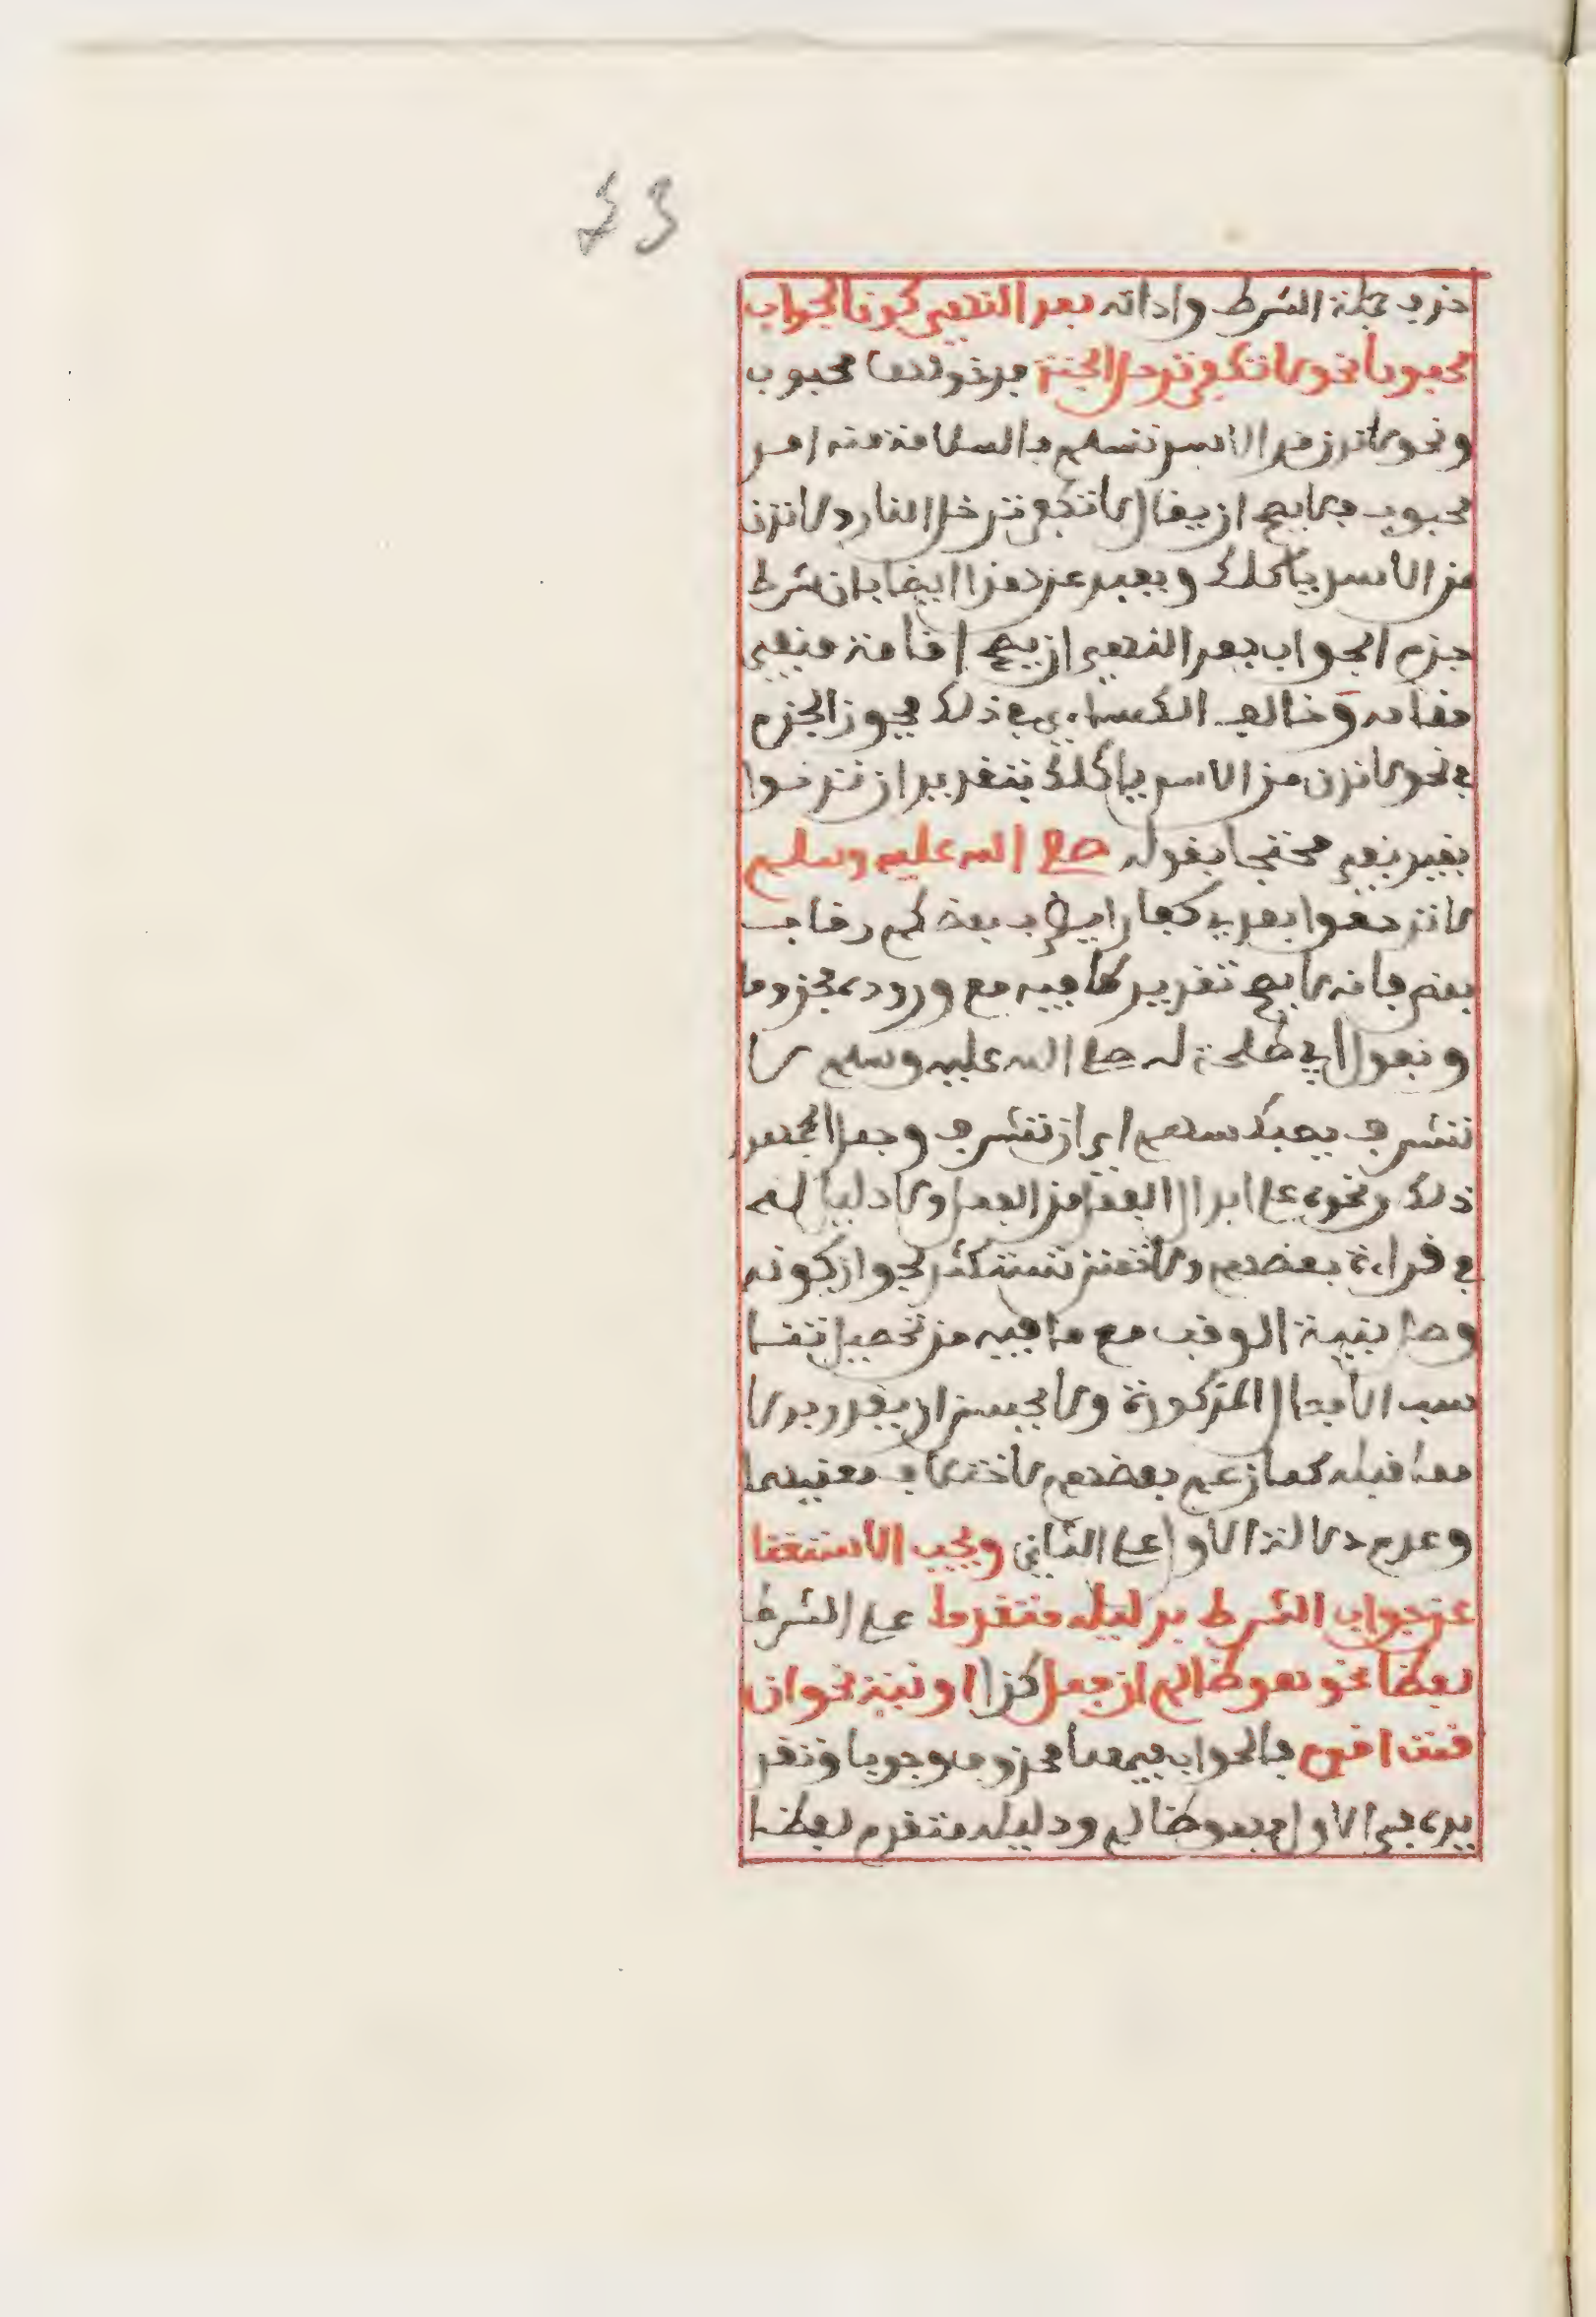 حذف جملة الشرط واداته بعد النهي كون الجواب
محبوبا نحو لا تكفر تدخل الجنة فدخولها محبوب
ونحو لا تدن من الاسد تسلم فالسلامة منه امر
محبوب فلا يصح ان يقال لا تكفر تدخل النار ولا تدن
من الاسد يأكلك ويعبر عن هذا ايضا بان شرط
جزم الجواب بعد النهي ان يصح اقامة منفي
مقامه وخالف الكساءي في ذلك فيجوز الجزم
في نحو لا تدن من الاسد يأكلك بتقدير ان تدنوا
بغير نفي محتجا بقوله صلى الله عليه وسلم
لا ترجعوا بعدي كفارا يضرب بعضكم رقاب
بعض فانه لا يصح تقدير لا فيه مع وروده مجزوما
وبقول ابي طلحة له صلى الله عليه وسلم لا
تتشرف يصبك سهم اي ان تتشرف وجعل الجمهور
ذلك ونحوه على ابدال الفعل من الفعل ولا دليل لهم
في قراءة بعضهم ولا تمنن تستكثر لجواز كونه
وصل بنية الوقف مع ما فيه من تحصيل تنا
سب الافعال المذكورة ولا يحسن ان يقدر بدلا
مما قبله كما زعم بعضهم لاختلاف معنييهما
وعدم دلالة الاول على الثاني ويجب الاستغنا
عن جواب الشرط بدليله متقدما على الشرط
لفظا نحو هو ظالم ان فعل كذا او نية نحو ان
قمت اقوم فالجواب فيهما محذوف وجوبا وتقد
يره في الاول فهو ظالم ودليله متقدم لفظا